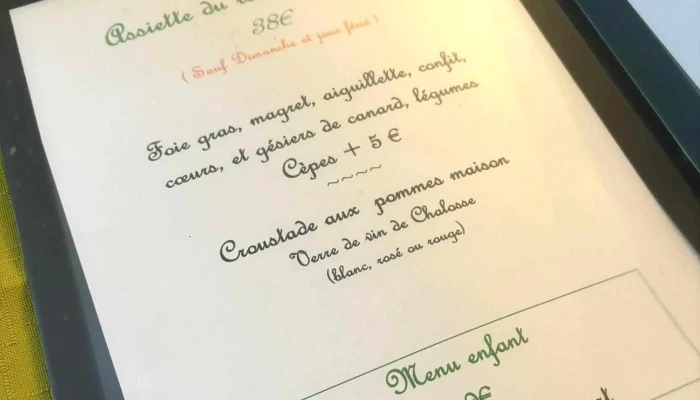 Assiette du
38€
( Sauf Dimanche et jours férié )
Foie gras, magret, aiguillette, confit,
cœurs, et gésiers de canard, légumes
Cèpes + 5 €
~~~~
Croustade aux pommes maison
Verre de vin de Chalosse
(blanc, rosé ou rouge)
Menu enfant
€